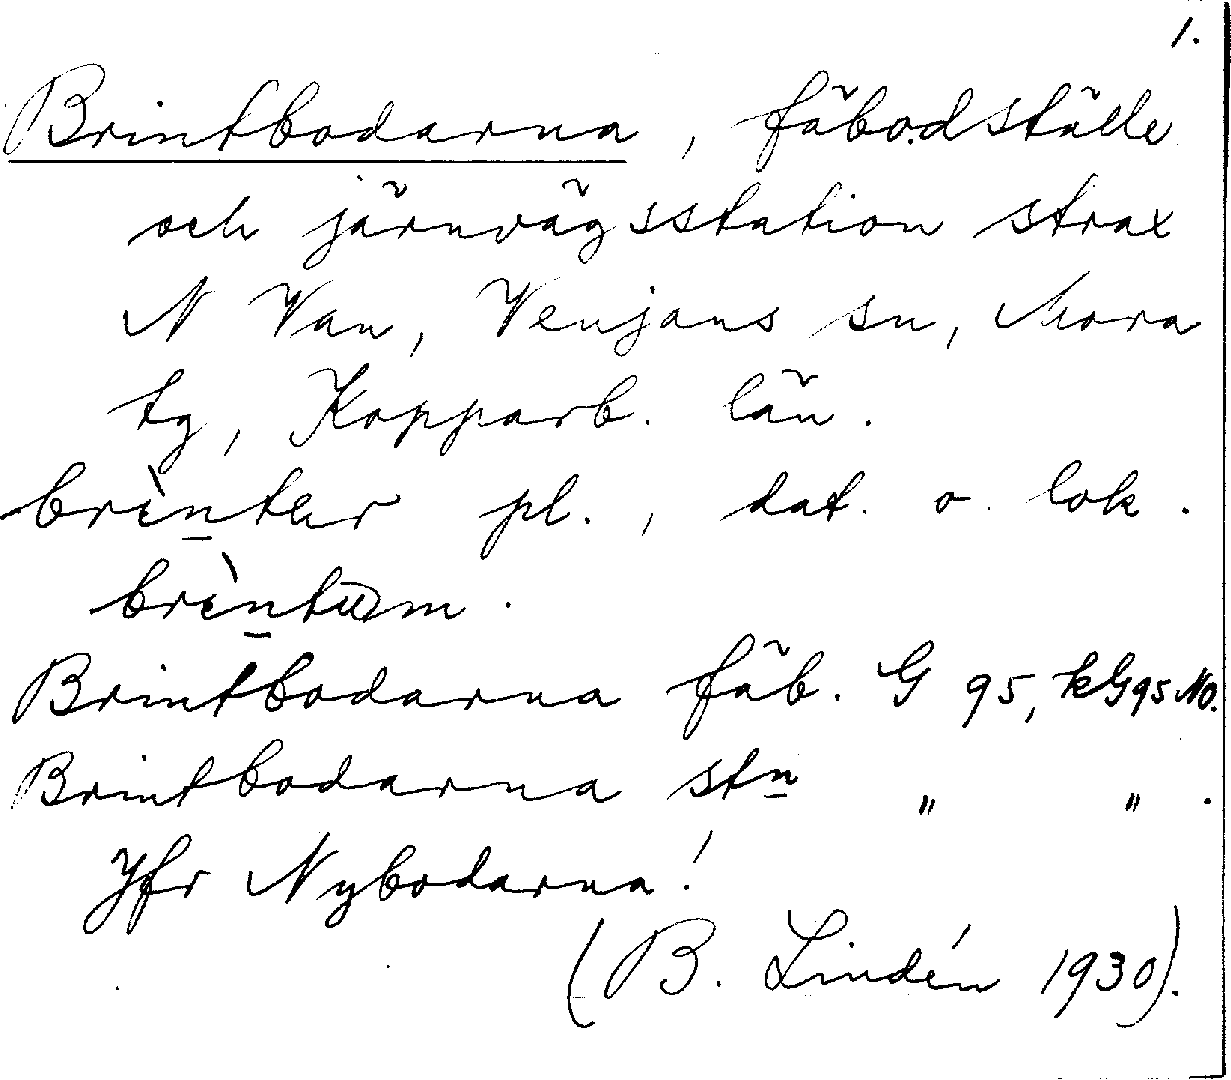 1.
Brintbodarna, fäbodställe
och järnvägsstation strax
N Van, Venjans sn, Mora
tg, Kopparb. län.
brı̀n̠tær pl., dat. o. lok.
brı̀n̠tom.
Brintbodarna fäb. G 95, kG95 NO.
Brintbodarna stn " ".
Jfr Nybodarna!
(B. Lindén 1930).